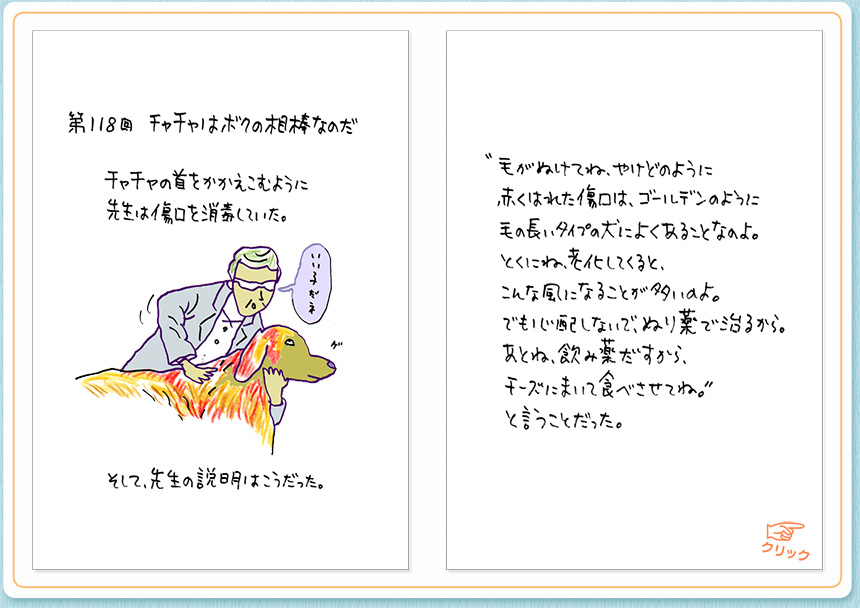 第118回 チャチャはボクの相棒なのだ
チャチャの首をかかえこむように
先生は傷口を消毒していた。
いい子だネ
グ
そして、先生の説明はこうだった。
〝毛がぬけてね、やけどのように
赤くはれた傷口は、ゴールデンのように
毛の長いタイプの犬によくあることなのよ。
とくにね、老化してくると、
こんな風になることが多いのよ。
でも心配しないで、ぬり薬で治るから。
あとね、飲み薬だすから、
チーズにまいて食べさせてね。〞
と言うことだった。
クリック